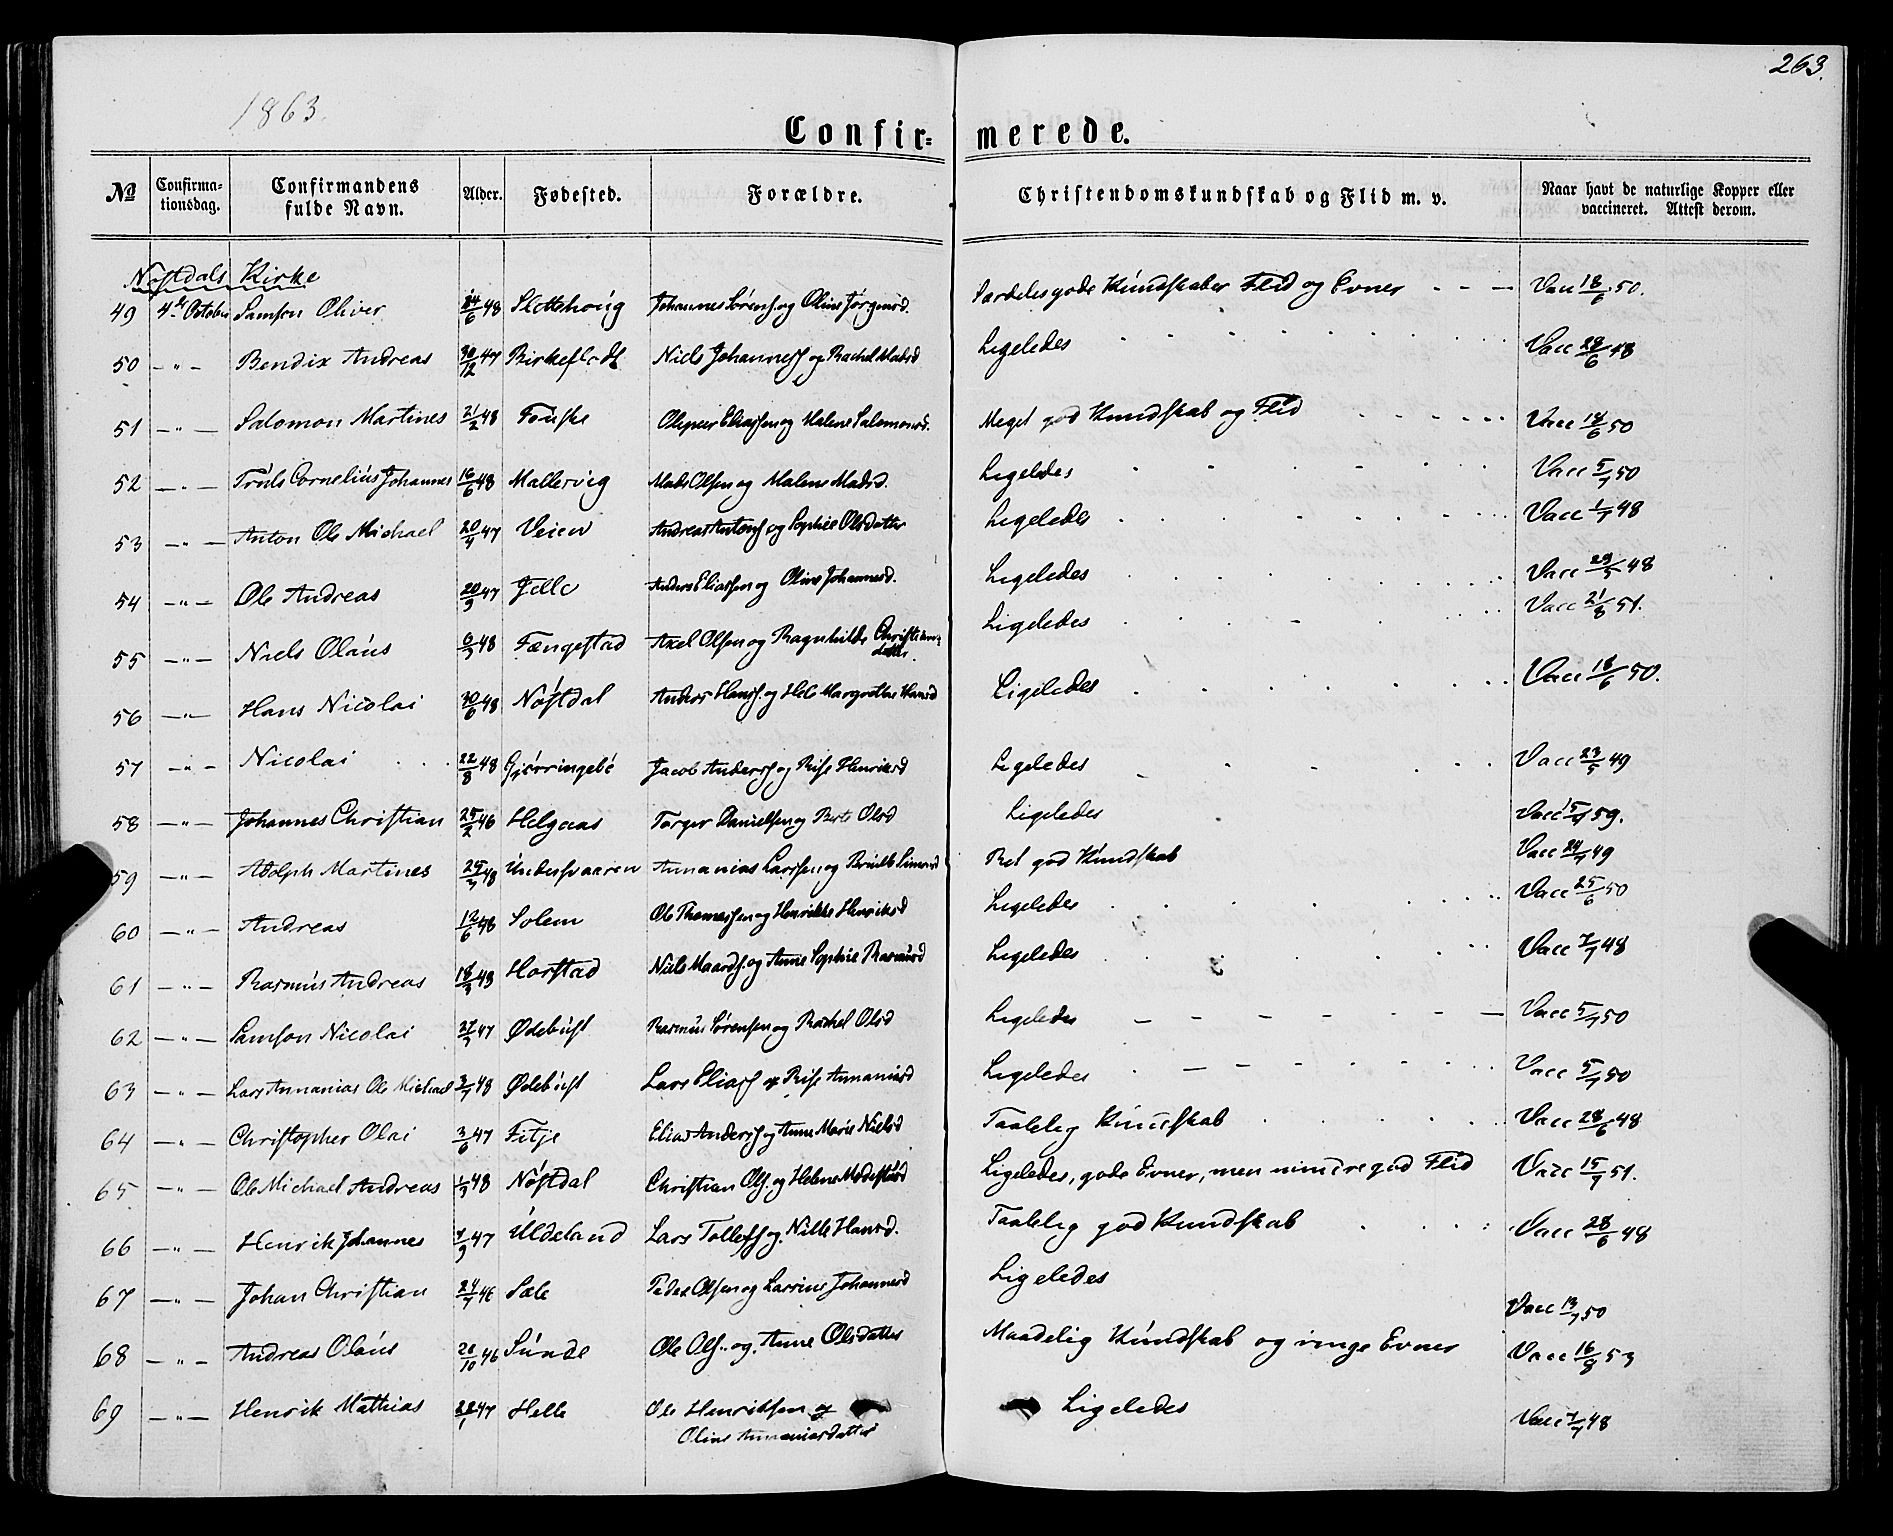 263.
1863.
Confir= merede.
№ Confirma-tionsdag. Confirmandens fulde Navn. Alder. Fødested. Forældre. Christendomskundskab og Flid m. v. Naar havt de naturlige Kopper eller vaccineret. Attest derom.
Nøstdals Kirke
49 4de October Samson Oliver 48 Slottehoug Johannes Sørens. og Oline Jørgensd. Særdeles gode Kundskaber Flid og Evner Vacc 18/6 50.
50 — " — Bendix Andreas 30/12 47 Birkeflodt Niels Johanness og Rachel Madsd Ligeledes Vacc 28/6 48
51 — " — Salomon Martines 21/2 48 Fouske Olepeer Eliassen og Malene Salomonsd. Meget god Kundskab og Flid Vacc 18/6 50
52 — " — Truls Cornelius Johannes 16/6 48 Mallervig Mads Olsen og Malene Madsd. Ligeledes Vacc 5/7 50
53 — " — Anton Ole Michael 47 Veien Andreas Antons og Sophie Olsdatter Ligeledes Vacc 1/7 48
54 — " — Ole Andreas 20/9 47 Jelle Anders Eliassen og Oline Johannesd. Ligeledes Vacc 29/5 48
55 — " — Niels Olaus 48 Fængestad Axel Olsen og Ragnhilde Christiansdatter Ligeledes Vacc 21/8 51.
56 — " — Hans Nicolai 30/6 48 Nøstdal Anders Hanss. og Hele Margrethe Hansd Ligeledes Vacc 18/6 50.
57 — " — Nicolai 22/8 48 Gjørringebø Jacob Anderss og Rise Henriksd Ligeledes Vacc 23/5 49
58 — " — Johannes Christian 25/2 46 Helgaas Torger Danielsen og Berte Olsd Ligeledes Vacc 59.
59 — " — Adolph Martines 48 Indersvaaren Annanias Larssen og Ret god Kundskab Vacc 24/7 49
60 — " — Andreas 12/6 48 Solem Ole Thomassen og Henrikke Henriksd Ligeledes Vacc 25/6 50
61 — " — Rasmus Andreas Horstad Niels og Anne Sophie Rasmusd Ligeledes Vacc 7/7 48
62 — " — Samson Nicolai 47 Ødebust Rasmus Sørensen og Rachel Olsd Ligeledes Vacc 5/7 50
63 — " — Lars Annanias Ole Michael 48 Ødebust Lars Eliass og Rise Annaniasd Ligeledes Vacc 5/7 50
64 — " — Christopher Olai 3/6 47 Fitje Elias Anderss og Anne Marie Nielsd Taalelig Kundskab Vacc 28/6 48
65 — " — Ole Michael Andreas 48 Nøstdal Christian Ols. og Helene Ligeledes, gode Evner, men mindre god Flid Vacc 15/7 51.
66 — " — Henrik Johannes 7/9 47 Uldeland Lars Tollefss og. Nille Hansd. Taalelig god Kundskab Vacc 28/6 48
67 — " — Johan Christian 46 Sæle Peder Olsen og Larsine Johannesd Ligeledes Vacc 13/7 50
68 — " — Andreas Olaus 28/10 46 Sunde Ole Ols. og. Anne Olsdatter Maadelig Kundskab og ringe Evner Vacc 16/8 53
69 — " — Henrik Mathias 47 Helle Ole Henriksen og Ligeledes Vacc 7/7 48
Oline Annaniasdatter